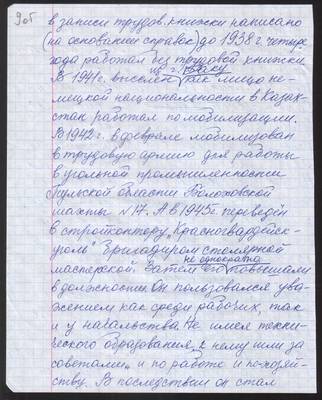 9об
в записи трудов. книжки написано
(на основании справок) до 1938 г. четыре
года работал без трудовой книжки.
В 1941г. выселен из г. Баку как лицо не-
мецкой национальности в Казах-
стан работал по мобилизации.
В 1942 г. в феврале мобилизован
в трудовую армию для работы
в угольной промышленности
Тульской области Болоховской
шахты №17. А в 1945г. переведён
в стройконтору „Красногвардейск-
уголь" бригадиром столярной
мастерской. Затем его не однократно повышали
в должности. Он пользовался ува-
жением как среди рабочих, так
и у начальства. Не имея техни-
ческого образования, к нему шли за
советами и по работе и по хозяй-
ству. В последствии он стал